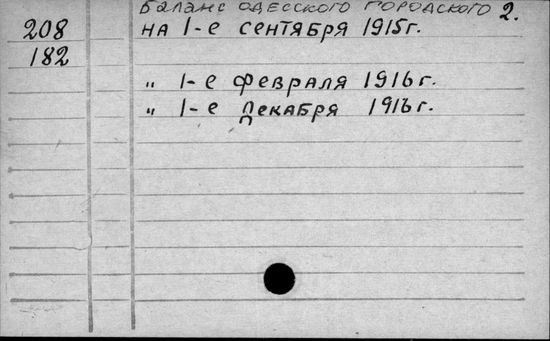 Баланс Одесского городского 2.
208 на 1-е сентября 1915г.
182
„ 1-е февраля 1916г.
„ 1-е декабря 1916г.